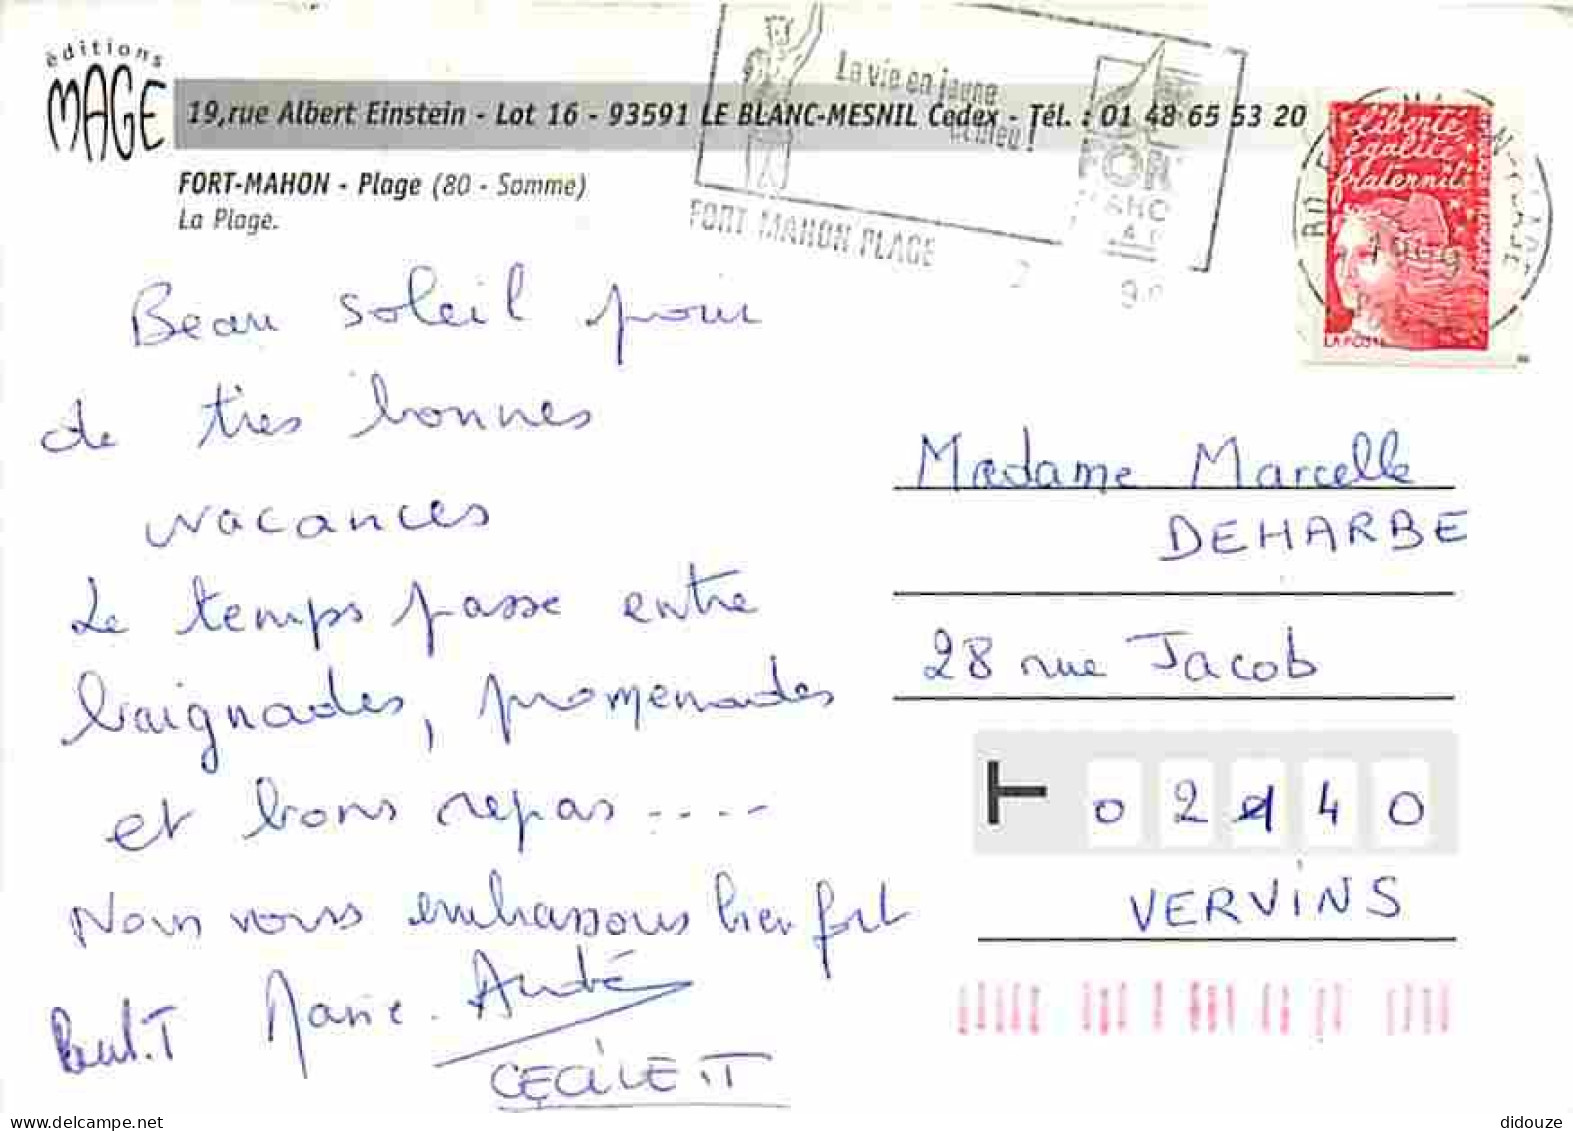 éditions
MAGE
19,rue Albert Einstein - Lot 16 - 93591 LE BLANC-MESNIL Cedex - Tél. : 01 48 65 53 20
FORT-MAHON - Plage (80 - Somme)
La Plage.
La vie en jaune
et bleu !
FORT MAHON PLAGE
liberté
égalité
fraternité
LA POSTE
Beau soleil pour
de très bonnes
vacances
Le temps passe entre
baignades, promenades
et bons repas ....
Nous vous embrassons bien fort
Paul.T Marie. André
CECILE T
Madame Marcelle
DEHARBE
28 rue Jacob
02140
VERVINS
didouze